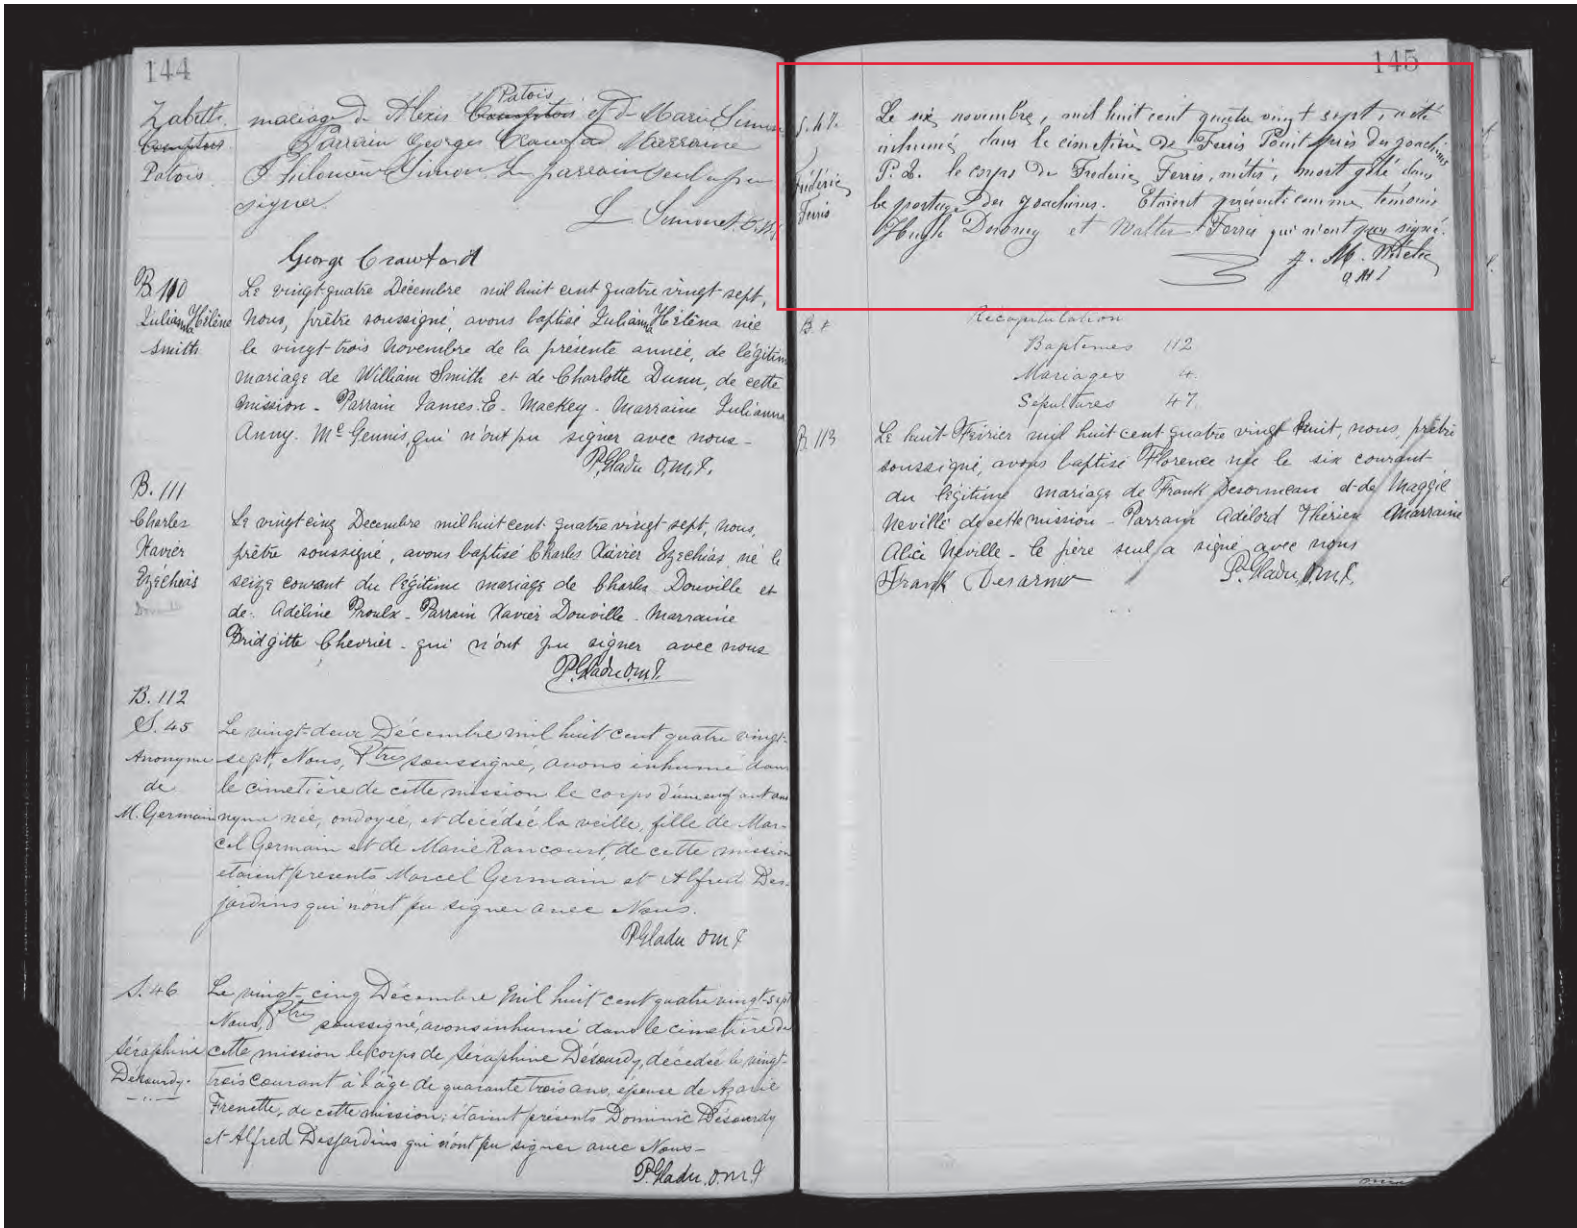 144
Zabeth
Comptois
Patois
mariage de Alexis Comptois Patois et de Marie Simon
Parrain Georges Crawford Marraine
Philomène Simon Le parrain seul a pu
signer
L Simonet O.M.I
George Crawford
B. 110
Julianna Hélène
Smith
Le vingt-quatre Décembre mil huit cent quatre vingt sept,
Nous, prêtre soussigné, avons baptisé Julianna Héléna née
le vingt-trois Novembre de la présente année, de légitime
mariage de William Smith et de Charlotte Dunn, de cette
mission - Parrain James. E. Mackey - Marraine Julianna
Anny. Mc Gennis, qui n'ont pu signer avec nous -
P. Gladu O.M.I.
B. 111
Charles
Xavier
Ezéchias
Douville
Le vingt cinq Decembre mil huit cent quatre vingt sept, nous,
prêtre soussigné, avons baptisé Charles Xavier Ezechias, né le
seize courant du légitime mariage de Charles Douville et
de Adéline Proulx - Parrain Xavier Douville - Marraine
Bridgitte Chevrier - qui n'ont pu signer avec nous
P. Gladu O.M.I.
B. 112
S. 45
Anonyme
de
M. Germain
Le vingt-deux Décembre mil huit cent quatre vingt-
sept, Nous, Ptre soussigné, avons inhumé dans
le cimetière de cette mission le corps d'un enfant ano
nyme née, ondoyée, et décédée la veille, fille de Mar-
cel Germain et de Marie Rancourt, de cette mission
étaient présents Marcel Germain et Alfred Des-
jardins qui n'ont pu signer avec Nous.
P. Gladu OMI
S. 46
Séraphine
Desourdy.
Le vingt-cinq Décembre Mil huit cent quatre vingt-sept
Nous, Ptre soussigné, avons inhumé dans le cimetière de
cette mission le corps de Séraphine Désourdy, décédée le vingt-
trois courant à l'âge de quarante trois ans, épouse de Azarie
Frenette, de cette mission; étaient présents Dominic Désourdy
et Alfred Desjardins qui n'ont pu signer avec Nous -
P. Gladu. O.M.I
145
S. 47.
Frédéric
Ferris
Le six novembre, mil huit cent quatre vingt sept, a été
inhumé, dans le cimetière de Ferris Point près des Joachims
P. Q. le corps de Frédéric Ferris, métis, mort gelé dans
le portage des Joachims. Etaient présents comme témoins
Hugh Doromy et Walter Ferris qui n'ont pas signé.
J. M.
O M I
Récapitulation
Baptêmes 112
Mariages 4.
Sépultures 47.
B. 113
Le huit Février mil huit cent quatre vingt huit, nous, prêtre
soussigné, avons baptisé Florence née le six courant
du légitime mariage de Frank Desormeau et de Maggie
Neville de cette mission - Parrain Adélord Thérien Marraine
Alice Neville - le père seul a signé avec nous
Frank Desarmo P. Gladu, O.M.I.